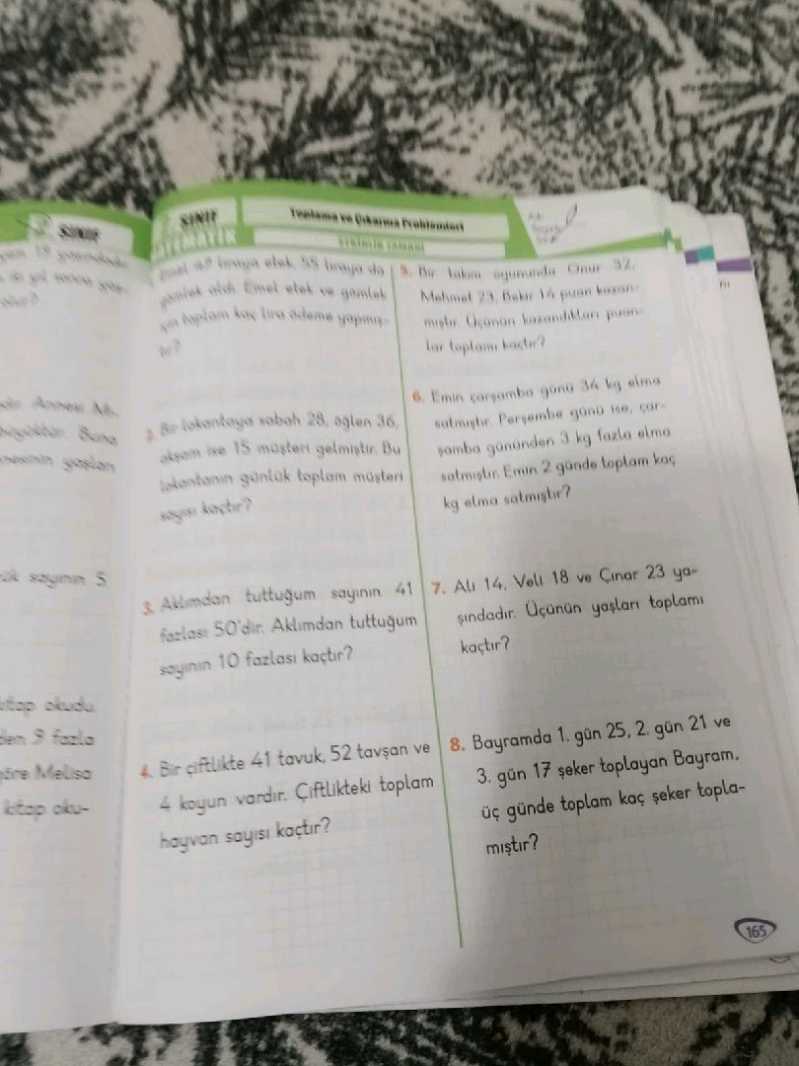 SINIF
SINIF
MATEMATİK
Toplama ve Çıkarma Problemleri
liraya etek, 55 liraya da
gömlek aldı. Emel etek ve gömlek
için toplam kaç lira ödeme yapmış-
tır?
Bir lokantaya sabah 28, öğlen 36,
akşam ise 15 müşteri gelmiştir. Bu
lokantanın günlük toplam müşteri
sayısı kaçtır?
3. Aklımdan tuttuğum sayının 41
fazlası 50'dir. Aklımdan tuttuğum
sayının 10 fazlası kaçtır?
4. Bir çiftlikte 41 tavuk, 52 tavşan ve
4 koyun vardır. Çiftlikteki toplam
hayvan sayısı kaçtır?
5. Bir takım oyununda Onur 32,
Mehmet 23, Bekir 14 puan kazan-
mıştır. Üçünün kazandıkları puan-
lar toplamı kaçtır?
6. Emin çarşamba günü 34 kg elma
satmıştır. Perşembe günü ise, çar-
şamba gününden 3 kg fazla elma
satmıştır. Emin 2 günde toplam kaç
kg elma satmıştır?
7. Ali 14, Veli 18 ve Çınar 23 ya-
şındadır. Üçünün yaşları toplamı
kaçtır?
8. Bayramda 1. gün 25, 2. gün 21 ve
3. gün 17 şeker toplayan Bayram,
üç günde toplam kaç şeker topla-
mıştır?
165
Annesi
büyüktür. Buna
yaşları
sayının 5
kitap okudu.
9 fazla
göre Melisa
kitap oku-